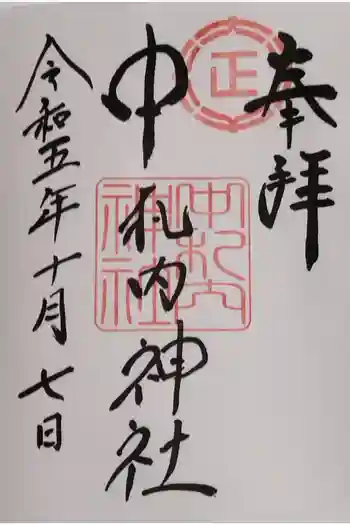 奉拝
正
中札内神社
中札内
神社
令和五年十月七日